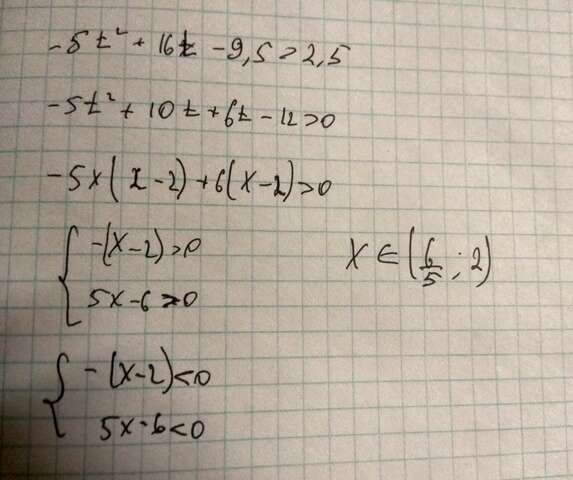 -5t² + 16t - 9,5 > 2,5
-5t² + 10t + 6t - 12 > 0
-5x(x-2) + 6(x-2) > 0
{ -(x-2) > 0
5x - 6 > 0
x ∈ (6/5 ; 2)
{ -(x-2) < 0
5x - 6 < 0